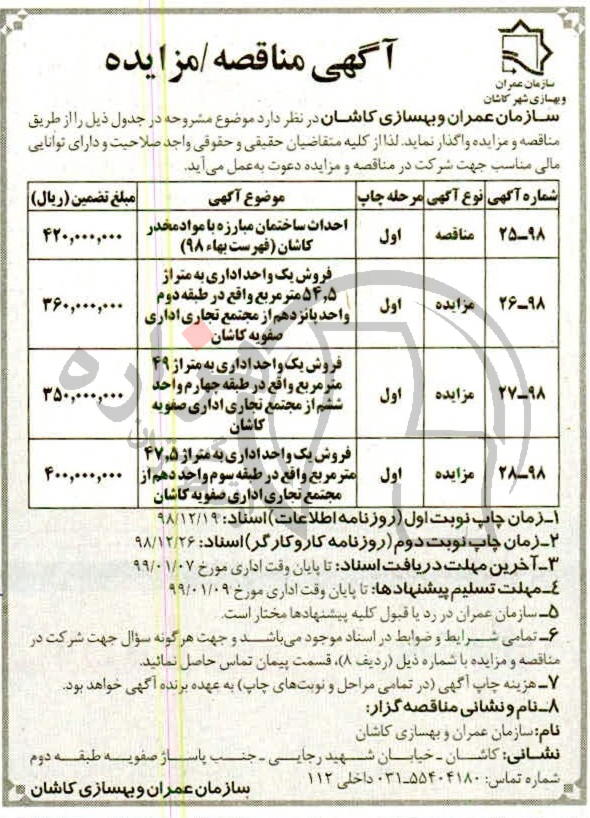 سازمان عمران
وبهسازی شهر کاشان
آگهی مناقصه/مزایده
سازمان عمران وبهسازی کاشان در نظر دارد موضوع مشروحه در جدول ذیل را از طریق
مناقصه و مزایده واگذار نماید. لذا از کلیه متقاضیان حقیقی و حقوقی واجد صلاحیت و دارای توانایی
مالی مناسب جهت شرکت در مناقصه و مزایده دعوت به‌عمل می‌آید.
شماره آگهی نوع آگهی مرحله چاپ موضوع آگهی مبلغ تضمین (ریال)
۹۸ـ۲۵ مناقصه اول احداث ساختمان مبارزه با مواد مخدر ۴۲۰,۰۰۰,۰۰۰
کاشان (فهرست بهاء ۹۸)
۹۸ـ۲۶ مزایده اول فروش یک واحد اداری به متراژ ۳۶۰,۰۰۰,۰۰۰
۵۴,۵ متر مربع واقع در طبقه دوم
واحد پانزدهم از مجتمع تجاری اداری
صفویه کاشان
۹۸ـ۲۷ مزایده اول فروش یک واحد اداری به متراژ ۴۹ ۳۵۰,۰۰۰,۰۰۰
متر مربع واقع در طبقه چهارم واحد
ششم از مجتمع تجاری اداری صفویه
کاشان
۹۸ـ۲۸ مزایده اول فروش یک واحد اداری به متراژ ۴۷,۵ ۴۰۰,۰۰۰,۰۰۰
متر مربع واقع در طبقه سوم واحد دهم از
مجتمع تجاری اداری صفویه کاشان
۱ـ زمان چاپ نوبت اول (روزنامه اطلاعات) اسناد: ۹۸/۱۲/۱۹
۲ـ زمان چاپ نوبت دوم (روزنامه کار و کارگر) اسناد: ۹۸/۱۲/۲۶
۳ـ آخرین مهلت دریافت اسناد: تا پایان وقت اداری مورخ ۹۹/۰۱/۰۷
۴ـ مهلت تسلیم پیشنهادها: تا پایان وقت اداری مورخ ۹۹/۰۱/۰۹
۵ـ سازمان عمران در رد یا قبول کلیه پیشنهادها مختار است.
۶ـ تمامی شرایط و ضوابط در اسناد موجود می‌باشد و جهت هرگونه سؤال جهت شرکت در
مناقصه و مزایده با شماره ذیل (ردیف ۸)، قسمت پیمان تماس حاصل نمائید.
۷ـ هزینه چاپ آگهی (در تمامی مراحل و نوبت‌های چاپ) به عهده برنده آگهی خواهد بود.
۸ـ نام و نشانی مناقصه گزار:
نام: سازمان عمران و بهسازی کاشان
نشانی: کاشان ـ خیابان شهید رجایی ـ جنب پاساژ صفویه طبقه دوم
شماره تماس: ۵۵۴۰۴۱۸۰ـ۰۳۱ داخلی ۱۱۲
سازمان عمران وبهسازی کاشان